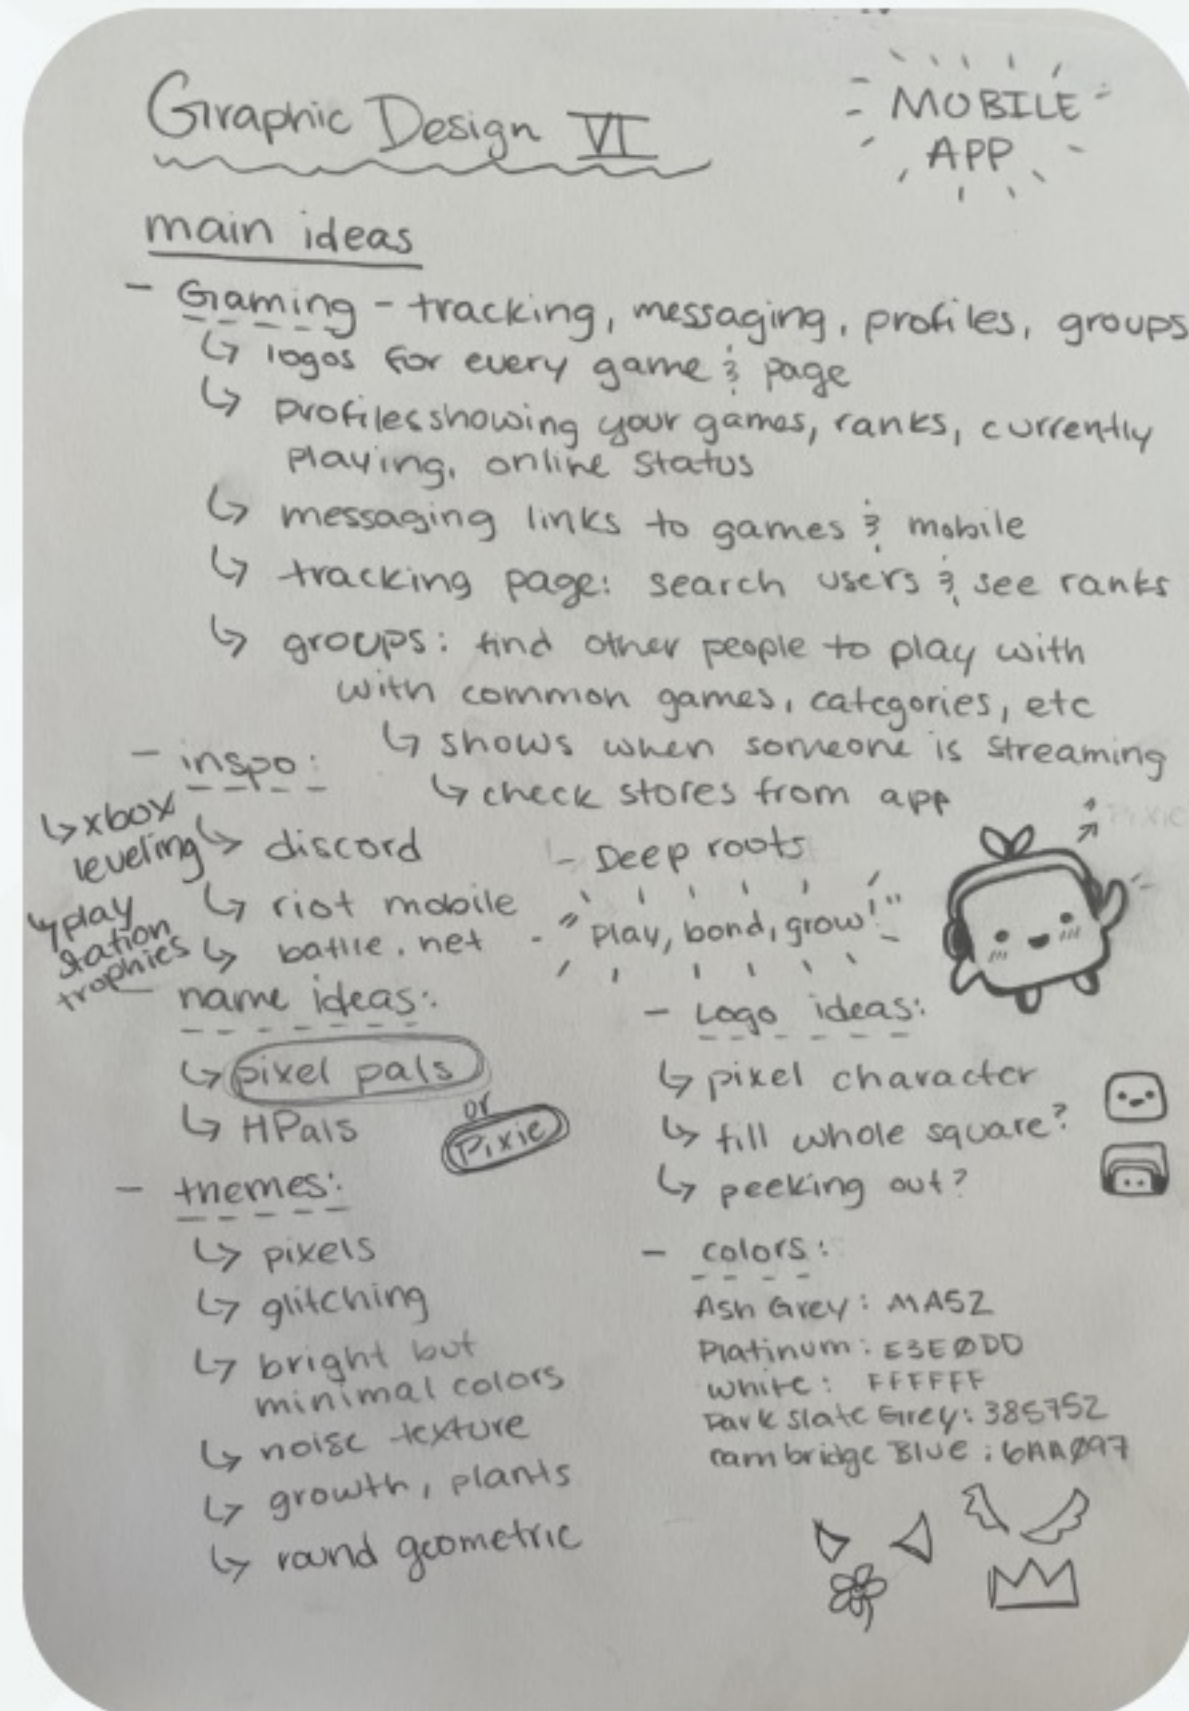 Graphic Design VI
MOBILE
APP
main ideas
- Gaming - tracking, messaging, profiles, groups
↳ logos for every game & page
↳ profiles showing your games, ranks, currently
playing, online status
↳ messaging links to games & mobile
↳ tracking page: search users & see ranks
↳ groups: find other people to play with
with common games, categories, etc
↳ shows when someone is streaming
↳ check stores from app
- inspo:
↳ xbox
leveling
↳ play
station
trophies
↳ discord
↳ riot mobile
↳ battle.net
- Deep roots
- "Play, bond, grow!"
Pixie
- name ideas:
↳ pixel pals
↳ HPals
or
Pixie
- Logo ideas:
↳ pixel character
↳ fill whole square?
↳ peeking out?
- themes:
↳ pixels
↳ glitching
↳ bright but
minimal colors
↳ noise texture
↳ growth, plants
↳ round geometric
- colors:
Ash Grey: MA52
Platinum: E3E0DD
White: FFFFFF
Dark Slate Grey: 385752
Cambridge Blue: 6AA097